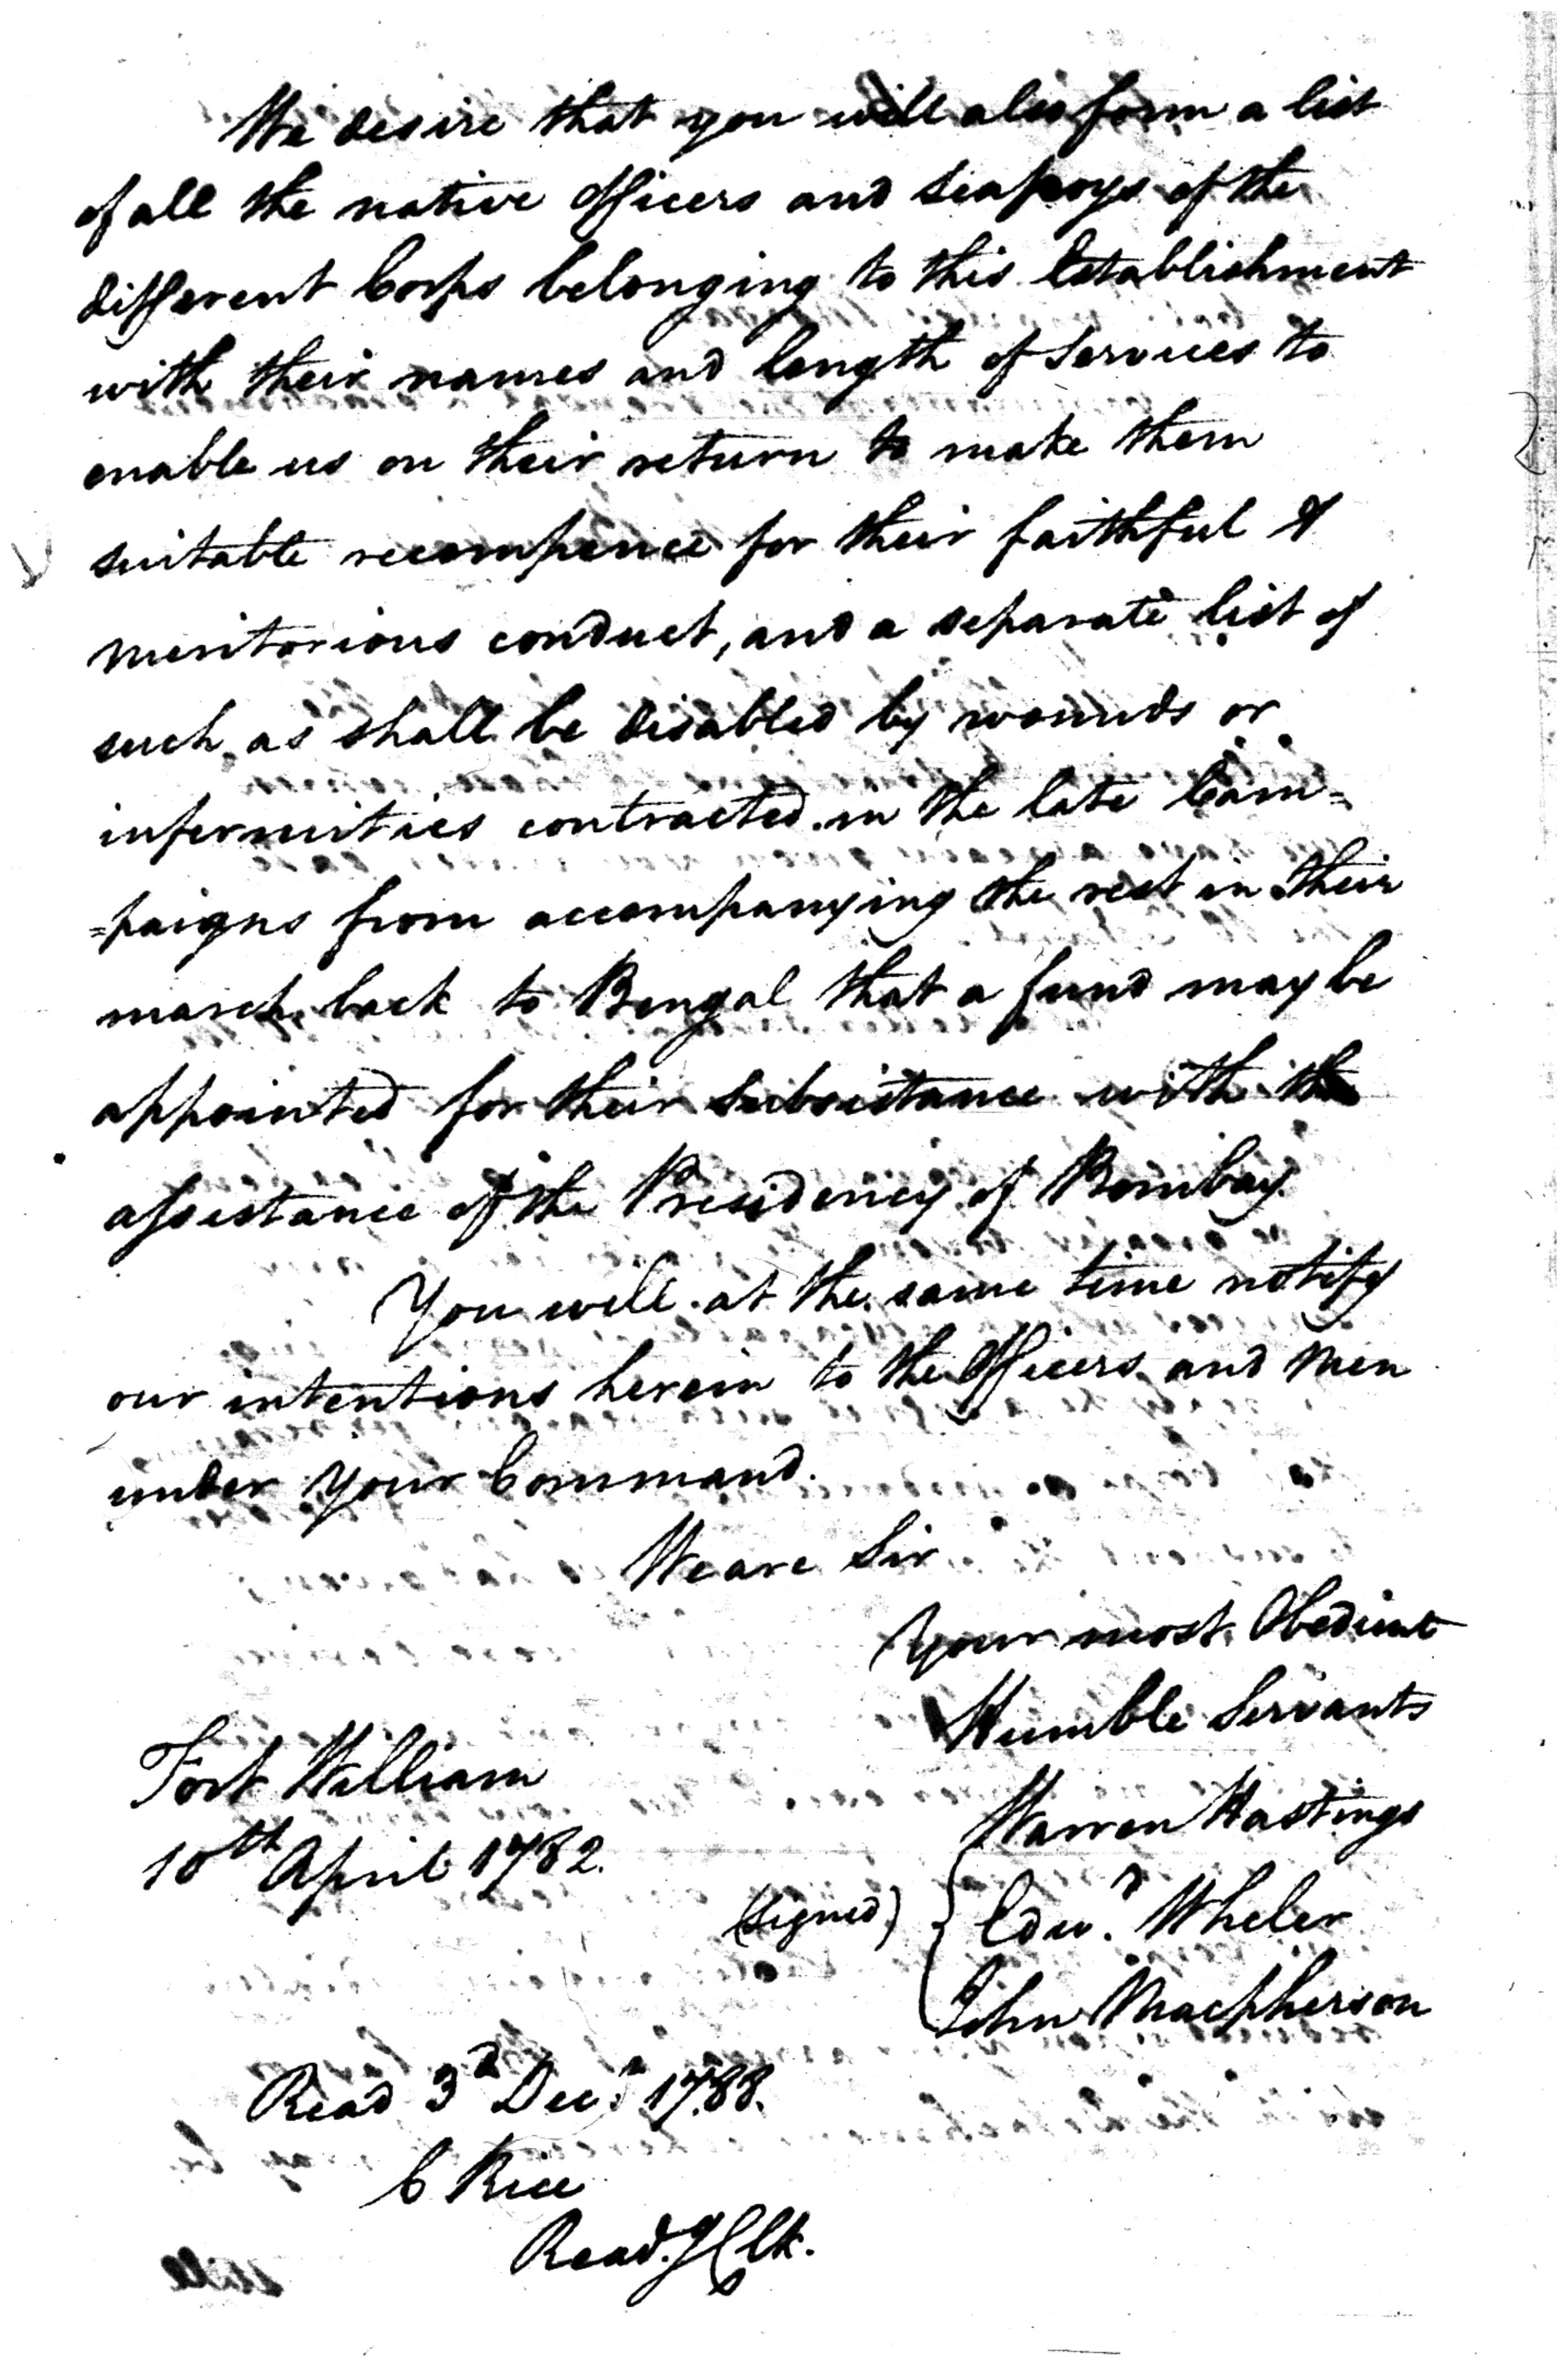 We desire that you will also form a list
of all the native Officers and Seapoys of the
different Corps belonging to this Establishment
with their names and length of Services to
enable us on their return to make them
suitable recompence for their faithful &
meritorious conduct, and a separate list of
such as shall be disabled by wounds or
infermities contracted in the late Cam=
=paigns from accompanying the rest in their
march back to Bengal that a fund may be
appointed for their Subsistance with the
assistance of the Presidency of Bombay.
You will at the same time notify
our intentions herein to the Officers and Men
under Your Command.
We are Sir
Your most Obedient
Humble Servants
Fort William
10th April 1782.
Warren Hastings
(signed) Edwd. Wheler
John Macpherson
Read 3d Decr. 1788.
C Rice
Readg Clk.